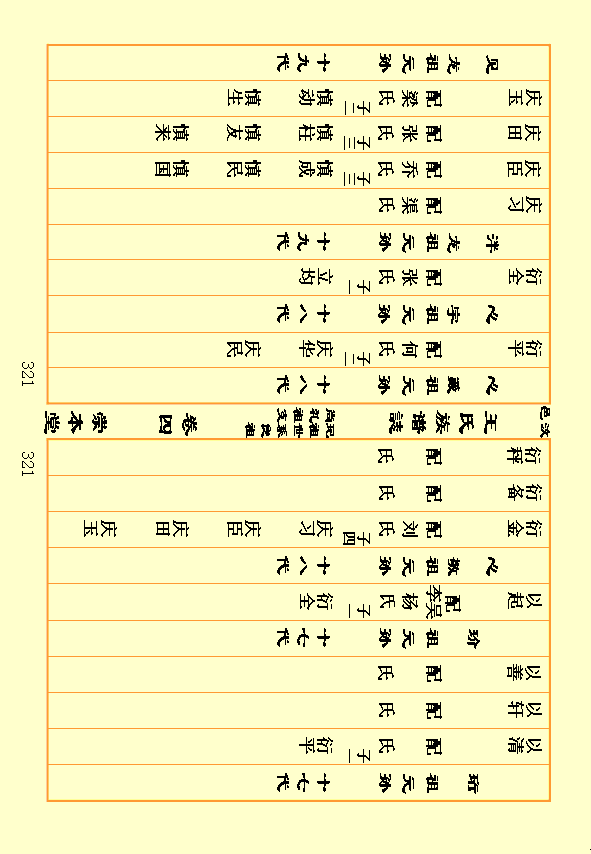 珩祖元孙 十七代
以清 配 氏 子一 衍平
以轩 配 氏
以善 配 氏
玠祖元孙 十七代
以起 配吴李杨氏 子一 衍全
心敦祖元孙 十八代
衍金 配刘氏 子四 庆习 庆臣 庆田 庆玉
衍备 配 氏
衍秤 配 氏
321
汶邑 王氏族谱誌 卷四 崇本堂
心 祖元孙 十八代
衍平 配何氏 子二 庆华 庆民
心字祖元孙 十八代
衍全 配张氏 子一 立均
泮友祖元孙 十九代
庆习 配渠氏
庆臣 配乔氏 子三 慎成 慎民 慎国
庆田 配张氏 子三 慎柱 慎友 慎来
庆玉 配梁氏 子二 慎动 慎生
见友祖元孙 十九代
321